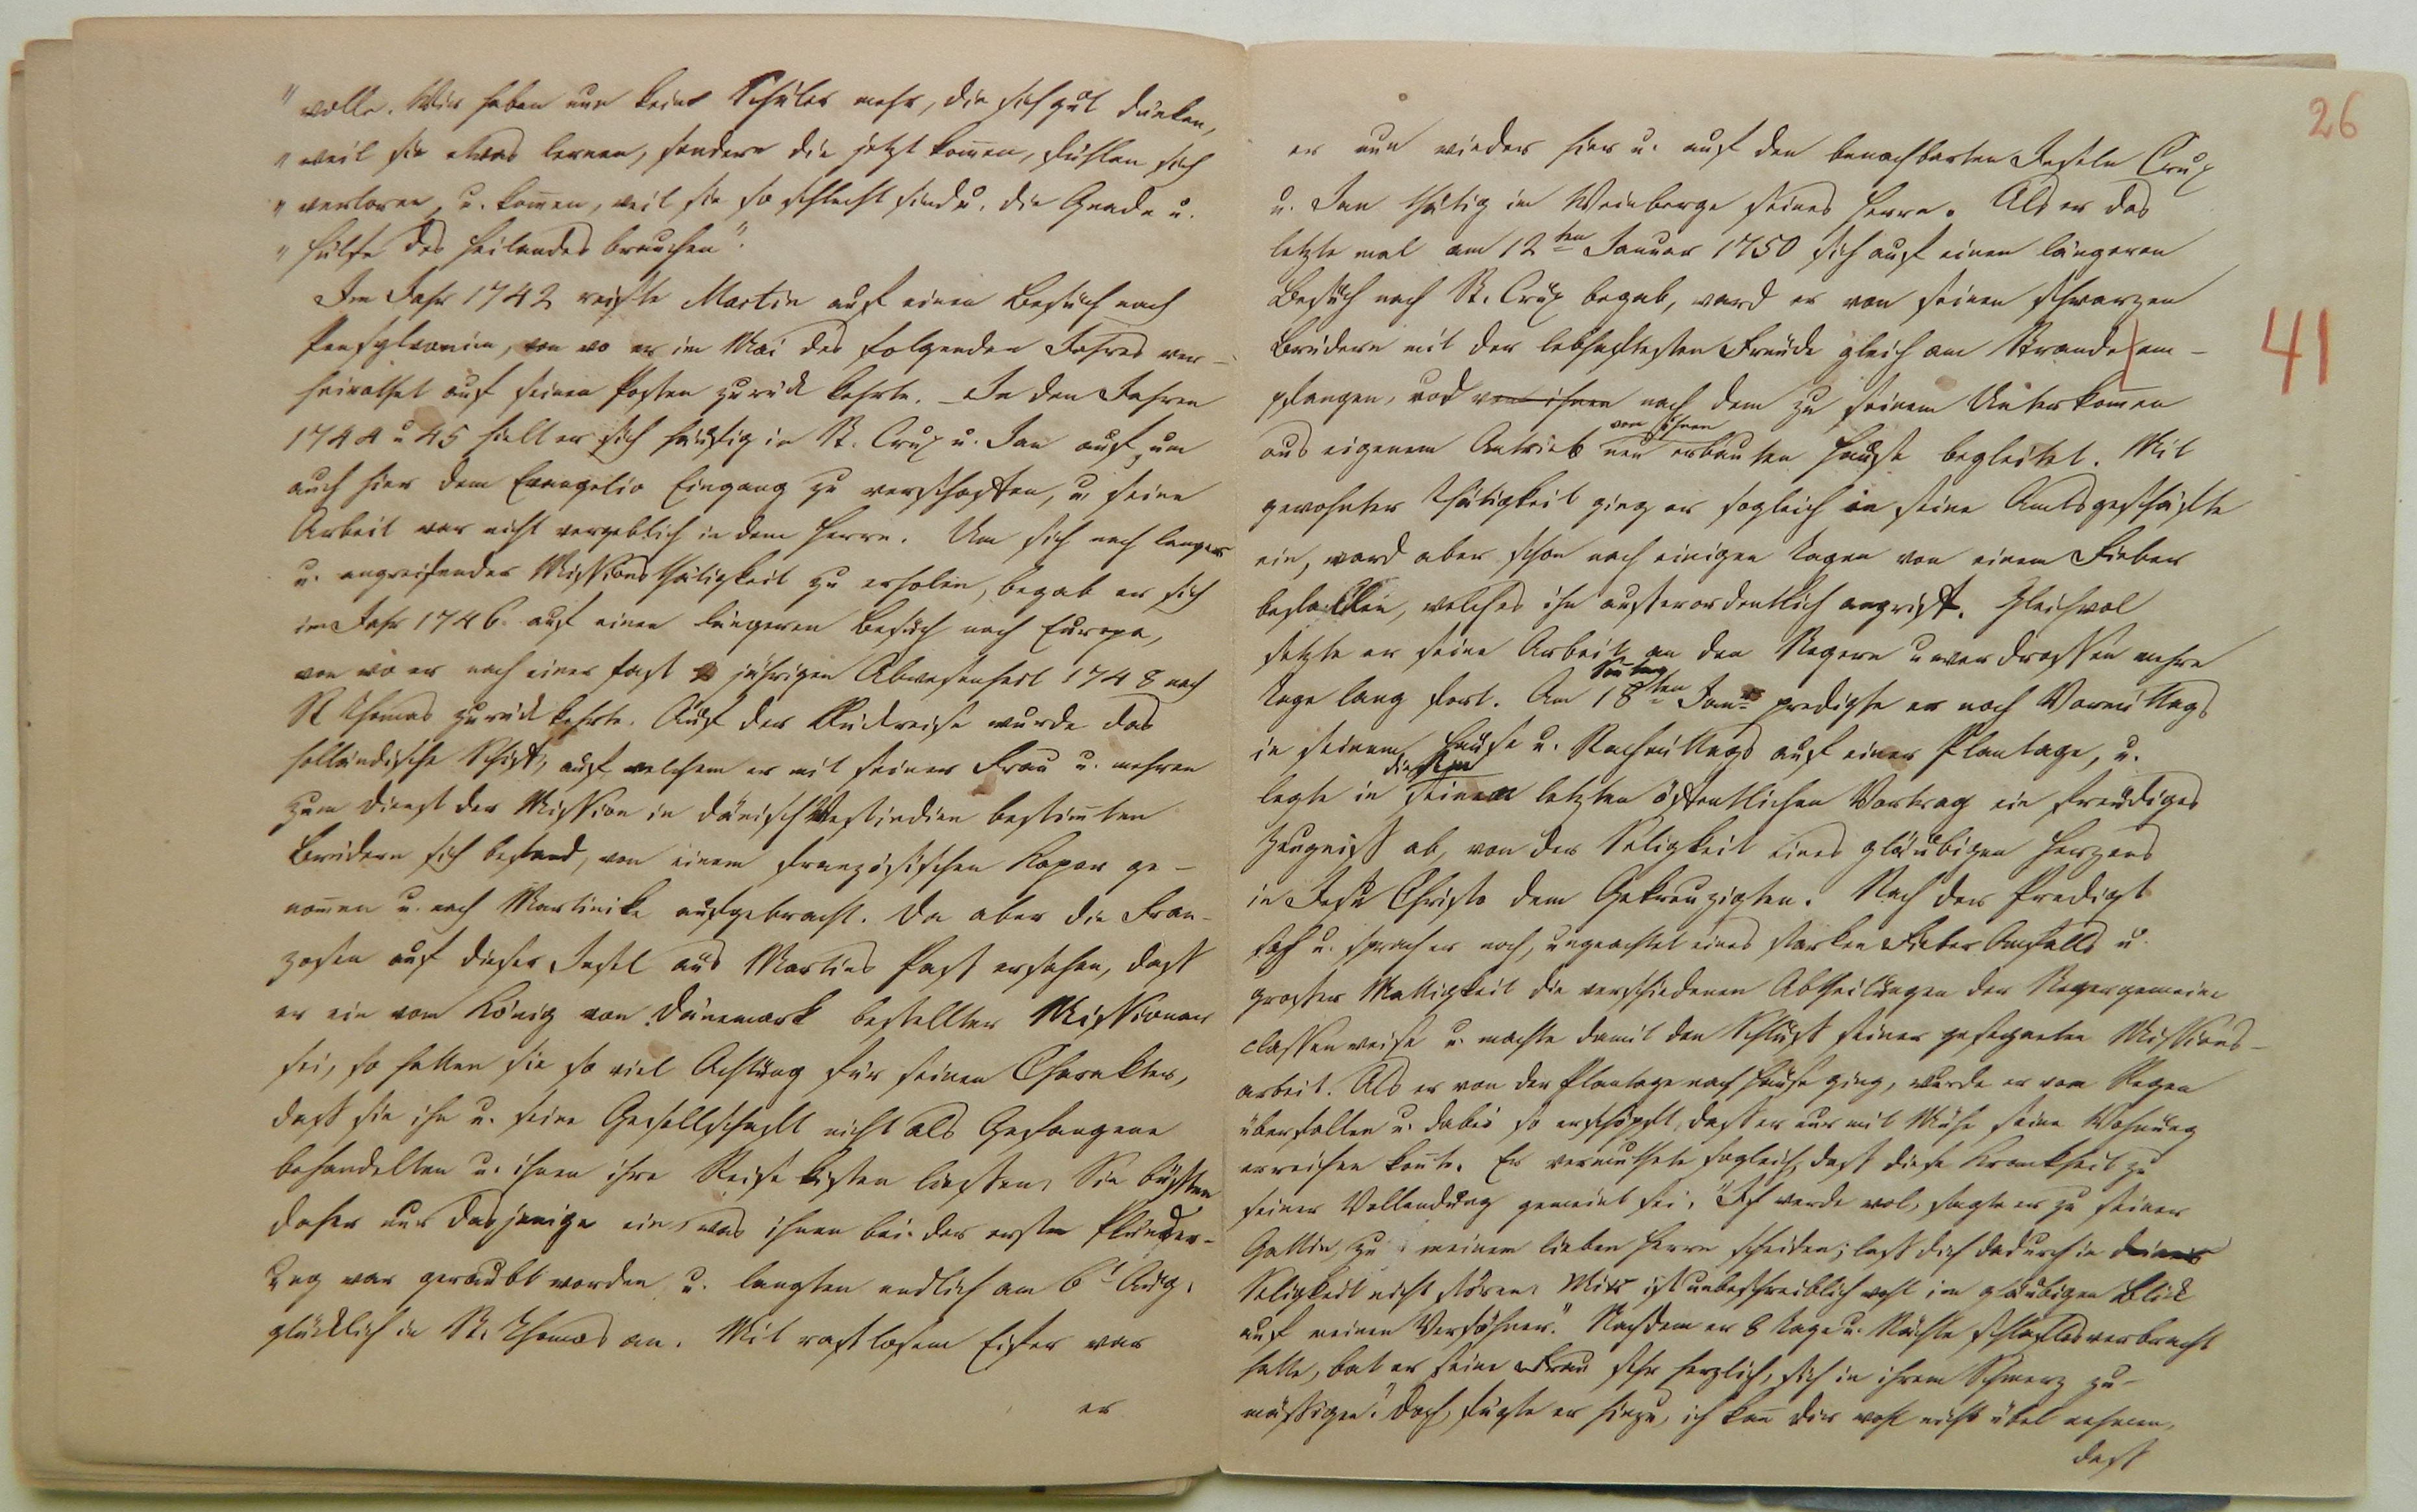 "volle. Wir haben nun keine Schüler mehr, die sich gut dünken,
"weil sie etwas lernen, sondern die jetzt kom̅en, fühlen sich
"verloren, u. kom̅en, weil sie so schlecht sind u. die Gnade u.
"Hülfe des Heilandes brauchen".
Im Jahr 1742 reiste Martin auf einen Besuch nach
Pensylvanien, von wo er im Mai des folgenden Jahres ver-
heirathet auf seinen Posten zurück kehrte. – In den Jahren
1744 u 45 hielt er sich häufig in St. Crux u. Jan auf um
auch hier dem Evangelio Eingang zu verschaffen, u. seine
Arbeit war nicht vergeblich in dem Herrn. Um sich nach langer
u. angreifender Missionsthätigkeit zu erholen, begab er sich
im Jahr 1746. auf einen längeren Besuch nach Europa,
von wo er nach einer fast jährigen Abwesenheit 1748 nach
St Thomas zurück kehrte. Auf der Rückreise wurde das
holländische Schiff, auf welchem er mit seiner Frau u. mehren
zum Dienst der Mission in dänisch Westindien bestim̅ten
Brüdern sich befand, von einem französischen Kaper ge-
nom̅en u. nach Martinike aufgebracht. Da aber die Fran-
zosen auf dieser Insel aus Martins Pass ersahen, dass
er ein vom König von Dänemark bestellter Missionar
sei, so hatten sie so viel Achtung für seinen Charakter,
dass sie ihn u. seine Gesellschaft nicht als Gefangene
behandelten u. ihnen ihre Reise kisten liessen. Sie büssten
daher nur dasjenige ein, was ihnen bei der ersten Plünder-
ung war geraubt worden, u. langten endlich am 6t Aug.
glücklich in St. Thomas an. Mit rastlosem Eifer war
er
26
41
er nun wieder hier u. auf den benachbarten Inseln Crux
u. Jan thätig im Weinberge seines Herrn. Als er das
letzte mal am 12ten Januar 1750 sich auf einen längeren
Besuch nach St. Crux begab, ward er von seinen schwarzen
Brüdern mit der lebhaftesten Freude gleich am Strande em-
pfangen, und von ihnen nach dem zu seinem Unterkom̅en
von ihnen
aus eigenem Antrieb neu erbauten Hause begleitet. Mit
gewohnter Thätigkeit ging er sogleich in seine Amtsgeschäfte
ein, ward aber schon nach einigen Tagen von einem Fieber
befallen, welches ihn ausserordentlich angriff. Gleichwol
setzte er seine Arbeit an den Negern unverdrossen mehre
Sontag
Tage lang fort. Am 18ten Janr predigte er noch Vormittags
in seinem Hause u. Nachmittags auf einer Plantage, u.
diesem
legte in seinem letzten öffentlichen Vortrag ein freudiges
Zeugniss ab, von der Seligkeit eines gläubigen Herzens
in Jesu Christo dem Gekreuzigten. Nach der Predigt
sah u. sprach er noch, ungeachtet eines starken Fieber Anfalls u.
grosser Mattigkeit die verschiedenen Abtheilungen der Negergemeine
classenweise u. machte damit den Schluss seiner gesegneten Missions-
arbeit. Als er von der Plantage nach Hause ging, wurde er vom Regen
überfallen u. dabei so erschöpft, dass er nur mit Mühe seine Wohnung
erreichen kon̅te. Er vermuthete sogleich, dass diese Krankheit zu
seiner Vollendung gemeint sei. "Ich werde wol, sagte er zu seiner
Gattin, zu meinem lieben Herrn scheiden; lass dich dadurch in deiner
Seligkeit nicht stören. Mir ist unbeschreiblich wohl im gläubigen Blick
auf meinen Versöhner." Nachdem er 8 Tage u. Nächte schlaflos verbracht
hatte, bat er seine Frau sehr herzlich, sich in ihrem Schmerz zu-
mässigen. "Doch, fügte er hinzu, ich kan̅ dirs wohl nicht übel nehmen,
dass